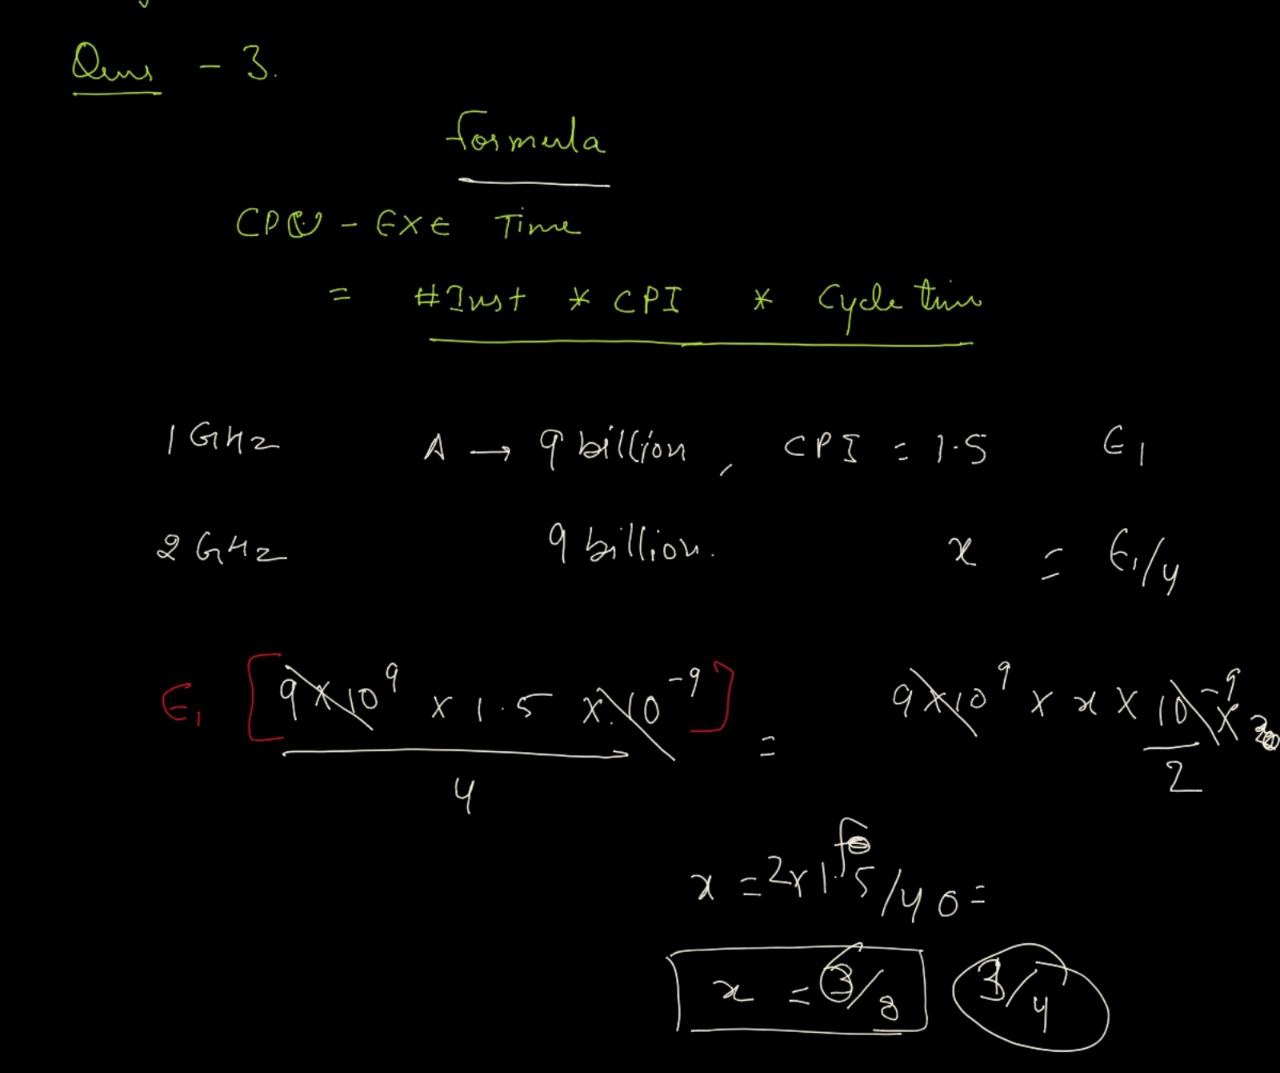 Ques - 3.
Formula
CPU - EXE Time
= #Inst * CPI * Cycle time
1 GHz A → 9 billion, CPI = 1.5 E1
2 GHz 9 billion. x = E1/4
E1 [9x10^9 x 1.5 x 10^-9] / 4 = 9x10^9 x x x 10^-9 / 2
x = 2x1.5/40 =
x = 3/8 3/4